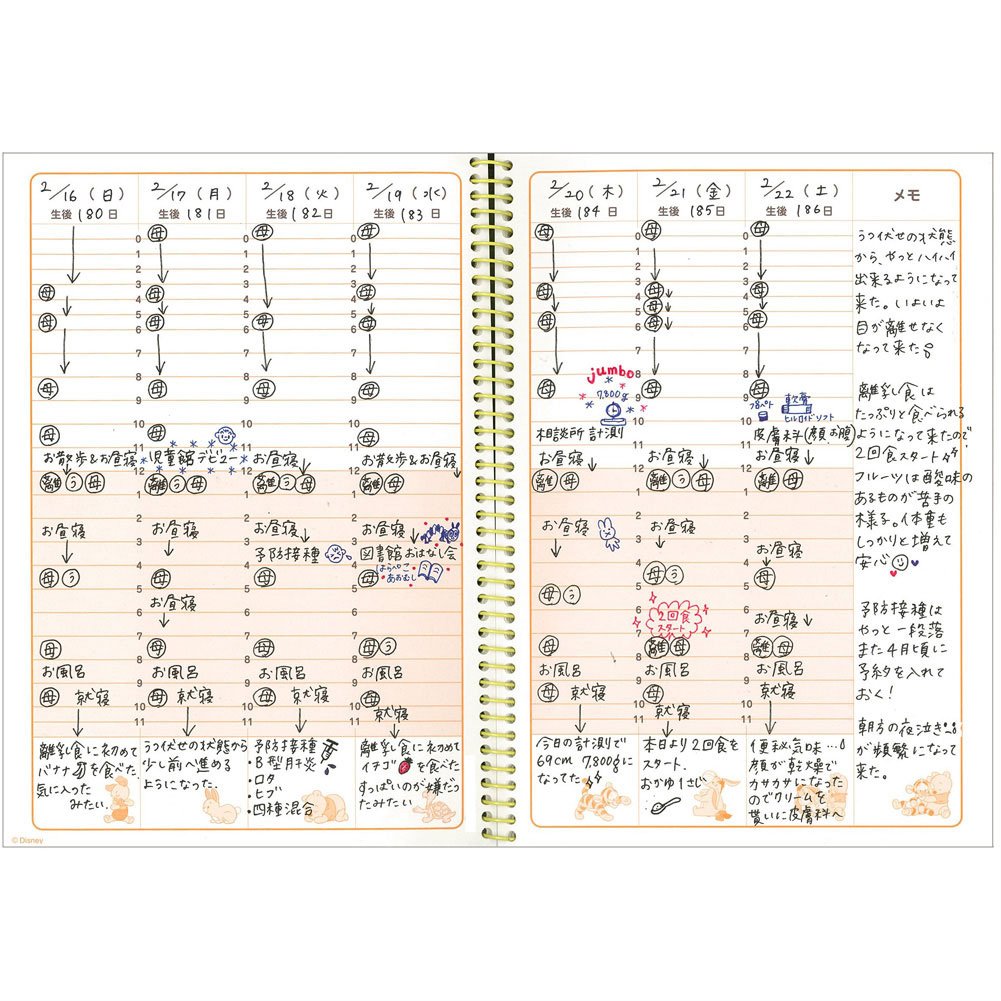 2/16(日)
生後180日
母
母
母
母
お散歩&お昼寝
離 う 母
お昼寝
母 う
母
お風呂
母 就寝
離乳食に初めて
バナナを食べた。
気に入った
みたい。
2/17(月)
生後181日
母
母
母
母
母
児童館デビュー
離 う 母
お昼寝
母
お昼寝
母
お風呂
母 就寝
うつ伏せの状態から
少し前へ進める
ようになった。
2/18(火)
生後182日
母
母
母
お昼寝
離 う 母
お昼寝
予防接種
母
母
お風呂
母 就寝
予防接種
・B型肝炎
・ロタ
・ヒブ
・四種混合
2/19(水)
生後183日
母
母
母
母
お散歩&お昼寝
離 母
お昼寝
図書館おはなし会
はらぺこ
あおむし
母
母 う
お風呂
母
就寝
離乳食に初めて
イチゴを食べた
すっぱいのが嫌だっ
たみたい
0
1
2
3
4
5
6
7
8
9
10
11
12
1
2
3
4
5
6
7
8
9
10
11
© Disney
2/20(木)
生後184日
母
母
母
母
jumbo
7,800g
相談所 計測
お昼寝
離 母
お昼寝
母 う
母
お風呂
母 就寝
今日の計測で
69cm 7,800gに
なってた
2/21(金)
生後185日
母
母
母
母
母
お昼寝
離 う 母
お昼寝
母 う
2回食
スタート
離 母
お風呂
母
就寝
本日より2回食を
スタート。
おかゆ1さじ
2/22(土)
生後186日
母
母
母
母
軟膏
ヒルロイドソフト
皮膚科(顔お腹)
お昼寝
離 母
お昼寝
母
お昼寝
離 母
お風呂
母
就寝
便秘気味…
顔が乾燥で
カサカサになった
のでクリームを
貰いに皮膚科へ
0
1
2
3
4
5
6
7
8
9
10
11
12
1
2
3
4
5
6
7
8
9
10
11
メモ
うつ伏せの状態
から、やっとハイハイ
出来るようになって
来た。いよいよ
目が離せなく
なって来た
離乳食は
たっぷりと食べられる
ようになって来たので
2回食スタート
フルーツは酸味の
あるものが苦手の
様子。体重も
しっかりと増えて
安心
予防接種は
やっと一段落
また4月頃に
予約を入れて
おく!
朝方の夜泣き
が頻繁になって
来た。